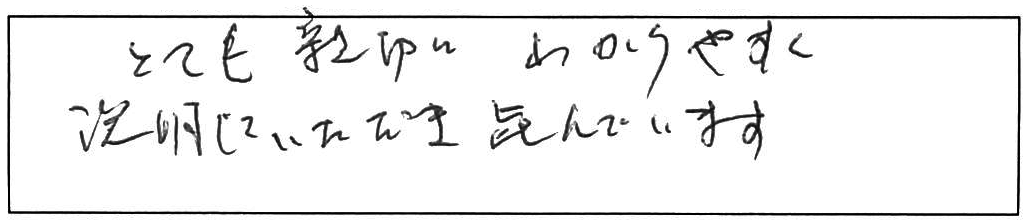 とても親切に わかりやすく
説明していただき 喜んでいます